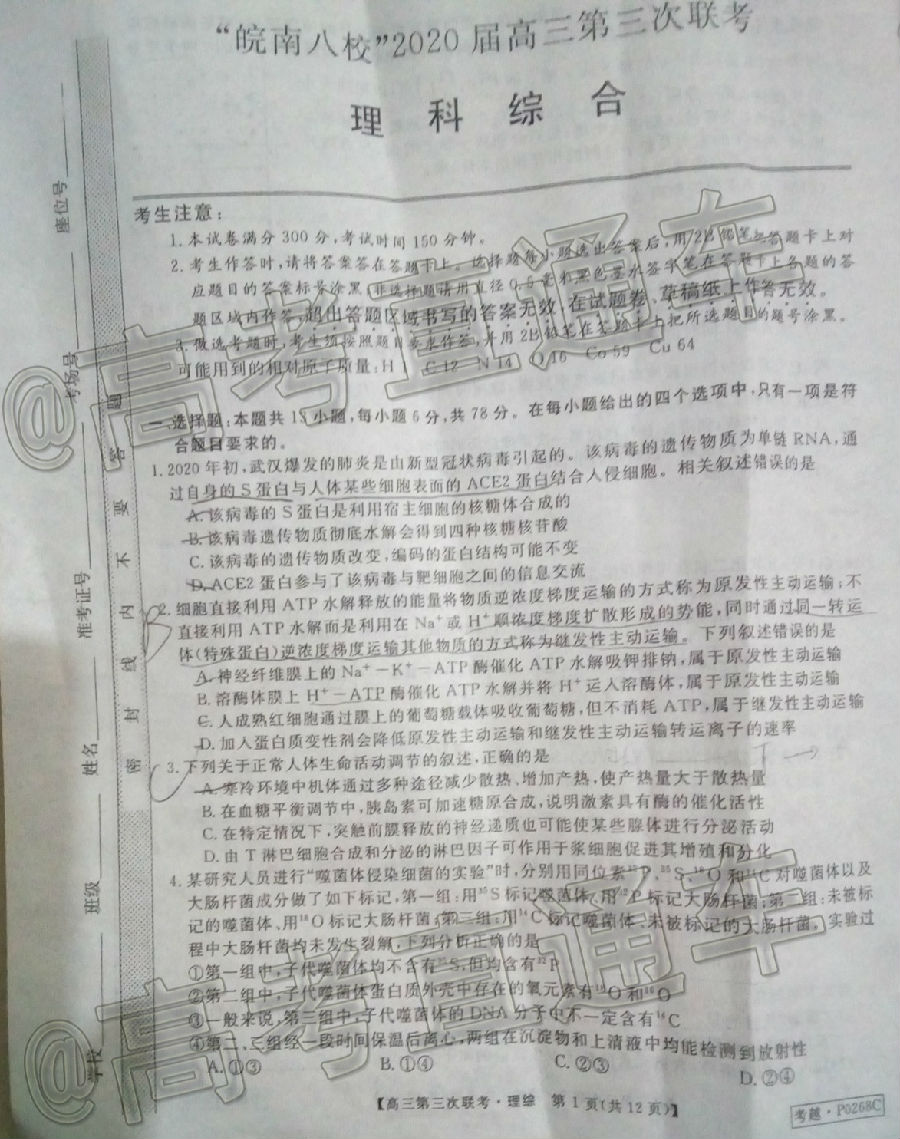 “皖南八校”2020届高三第三次联考
理科综合
考生注意:
1.本试卷满分300分,考试时间150分钟。
2.考生作答时,请将答案答在答题卡上。选择题每小题选出答案后,用2B铅笔把答题卡上对
应题目的答案标号涂黑;非选择题请用直径0.5毫米黑色墨水签字笔在答题卡上各题的答
题区域内作答,超出答题区域书写的答案无效,在试题卷、草稿纸上作答无效。
3.做选考题时,考生须按照题目要求作答,并用2B铅笔在答题卡上把所选题目的题号涂黑。
可能用到的相对原子质量:H 1 C 12 N 14 O 16 Co 59 Cu 64
一、选择题:本题共13小题,每小题6分,共78分。在每小题给出的四个选项中,只有一项是符
合题目要求的。
1.2020年初,武汉爆发的肺炎是由新型冠状病毒引起的。该病毒的遗传物质为单链RNA,通
过自身的S蛋白与人体某些细胞表面的ACE2蛋白结合入侵细胞。相关叙述错误的是
A.该病毒的S蛋白是利用宿主细胞的核糖体合成的
B.该病毒遗传物质彻底水解会得到四种核糖核苷酸
C.该病毒的遗传物质改变,编码的蛋白结构可能不变
D.ACE2蛋白参与了该病毒与靶细胞之间的信息交流
2.细胞直接利用ATP水解释放的能量将物质逆浓度梯度运输的方式称为原发性主动运输;不
直接利用ATP水解而是利用在Na⁺或H⁺顺浓度梯度扩散形成的势能,同时通过同一转运
体(特殊蛋白)逆浓度梯度运输其他物质的方式称为继发性主动运输。下列叙述错误的是
A.神经纤维膜上的Na⁺-K⁺-ATP酶催化ATP水解吸钾排钠,属于原发性主动运输
B.溶酶体膜上H⁺-ATP酶催化ATP水解并将H⁺运入溶酶体,属于原发性主动运输
C.人成熟红细胞通过膜上的葡萄糖载体吸收葡萄糖,但不消耗ATP,属于继发性主动运输
D.加入蛋白质变性剂会降低原发性主动运输和继发性主动运输转运离子的速率
3.下列关于正常人体生命活动调节的叙述,正确的是
A.寒冷环境中机体通过多种途径减少散热、增加产热,使产热量大于散热量
B.在血糖平衡调节中,胰岛素可加速糖原合成,说明激素具有酶的催化活性
C.在特定情况下,突触前膜释放的神经递质也可能使某些腺体进行分泌活动
D.由T淋巴细胞合成和分泌的淋巴因子可作用于浆细胞促进其增殖和分化
4.某研究人员进行“噬菌体侵染细菌的实验”时,分别用同位素³²P、³⁵S、¹⁸O和¹⁴C对噬菌体以及
大肠杆菌成分做了如下标记,第一组:用³⁵S标记噬菌体、用³²P标记大肠杆菌;第二组:未被标
记的噬菌体、用¹⁸O标记大肠杆菌;第三组:用¹⁴C标记噬菌体、未被标记的大肠杆菌。实验过
程中大肠杆菌均未发生裂解,下列分析正确的是
①第一组中,子代噬菌体均不含有³⁵S,但均含有³²P
②第二组中,子代噬菌体蛋白质外壳中存在的氧元素有¹⁸O和¹⁶O
③一般来说,第三组中,子代噬菌体的DNA分子中不一定含有¹⁴C
④第二、三组经一段时间保温后离心,两组在沉淀物和上清液中均能检测到放射性
A.①③ B.①④ C.②③ D.②④
【高三第三次联考·理综 第1页(共12页)】
考越·P0268C
学校
班级
姓名
准考证号
考场号
座位号
密封线内不要答题
@高考直通车
@高考直通车